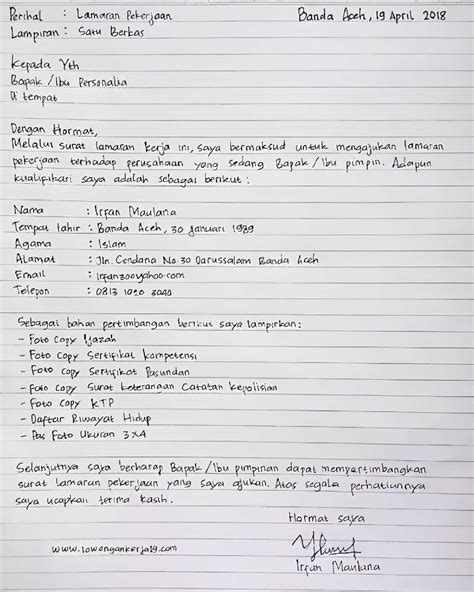 Perihal : Lamaran Pekerjaan Banda Aceh, 19 April 2018
Lampiran : Satu Berkas
Kepada Yth
Bapak / Ibu Personalia
Di tempat
Dengan Hormat,
Melalui surat lamaran kerja ini, saya bermaksud untuk mengajukan lamaran
pekerjaan terhadap perusahaan yang sedang Bapak / Ibu pimpin. Adapun
kualifikasi saya adalah sebagai berikut :
Nama : Irfan Maulana
Tempat lahir : Banda Aceh, 30 Januari 1989
Agama : Islam
Alamat : Jln. Cendana No.30 Darussalam Banda Aceh
Email : Irfanzooyahoo.com
Telepon : 0813 1020 3040
Sebagai bahan pertimbangan berikut saya lampirkan :
- Foto Copy Ijazah
- Foto Copy Sertifikat Kompetensi
- Foto Copy Sertifikat Pasundan
- Foto Copy Surat Keterangan Catatan Kepolisian
- Foto Copy KTP
- Daftar Riwayat Hidup
- Pas Foto Ukuran 3X4
Selanjutnya saya berharap Bapak / Ibu pimpinan dapat mempertimbangkan
surat lamaran pekerjaan yang saya ajukan. Atas segala perhatiannya
saya ucapkan terima kasih.
Hormat saya
www.lowongankerja19.com
Irfan Maulana